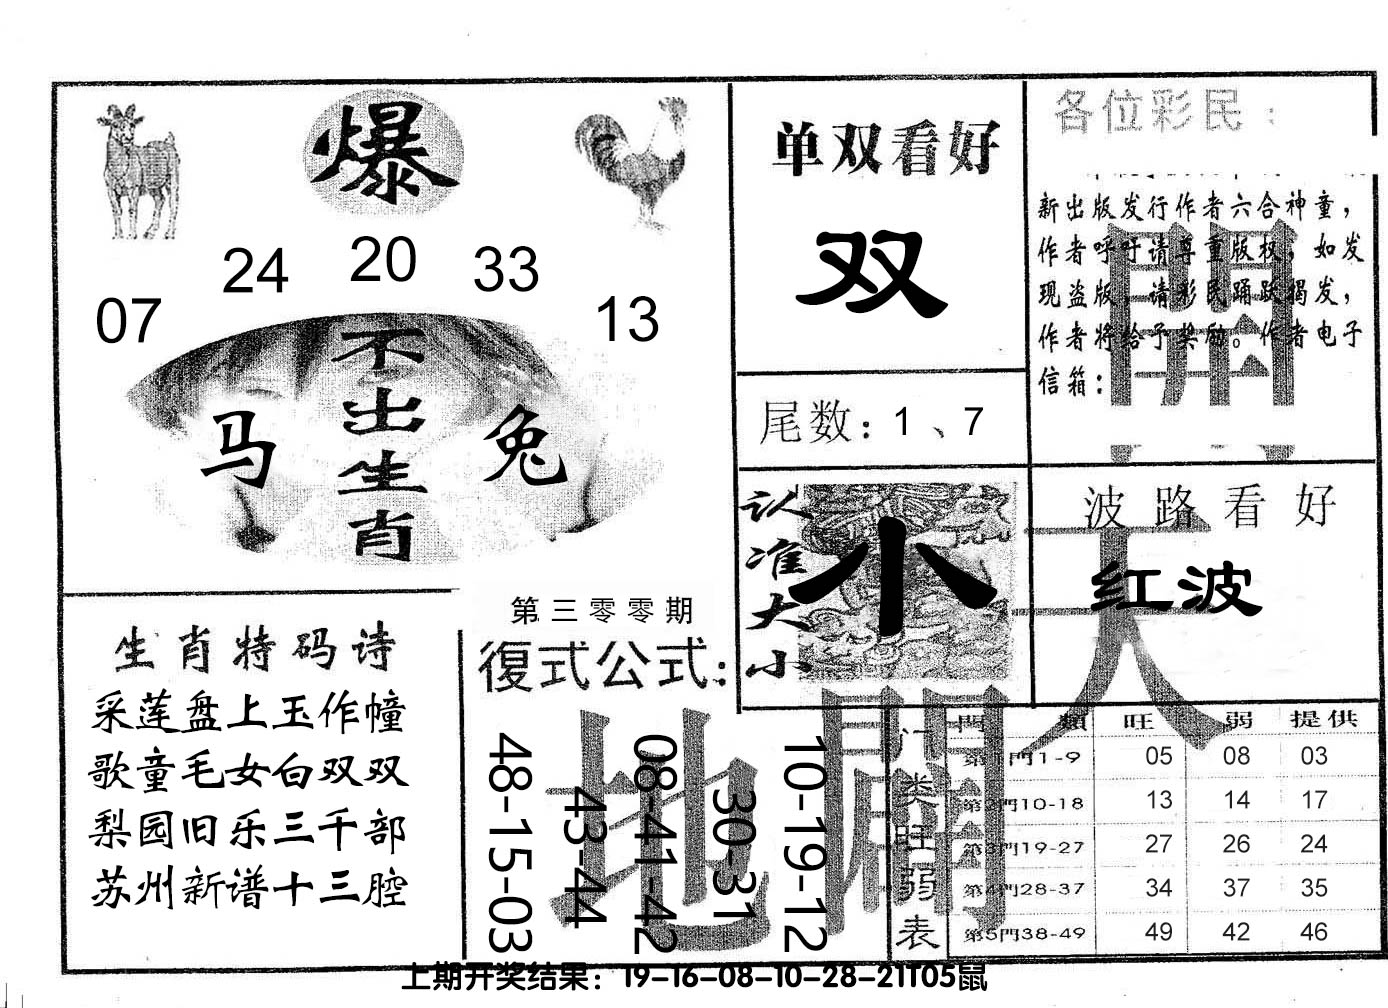 爆
24 20 33
07 13
不出生肖
马 兔
单双看好
双
尾数：1、7
各位彩民：
新出版发行作者六合神童，
作者呼吁请尊重版权，如发
现盗版，请彩民踊跃揭发，
作者将给予奖励。作者电子
信箱：
认准大小
小
波路看好
红波
生肖特码诗
采莲盘上玉作幢
歌童毛女白双双
梨园旧乐三千部
苏州新谱十三腔
第三零零期
復式公式：
48-15-03
43-44
08-41-42
30-31
10-19-12
天
地
開
門類 旺 弱 提供
门类旺弱表
第1門1-9 05 08 03
第2門10-18 13 14 17
第3門19-27 27 26 24
第4門28-37 34 37 35
第5門38-49 49 42 46
上期开奖结果：19-16-08-10-28-21T05鼠